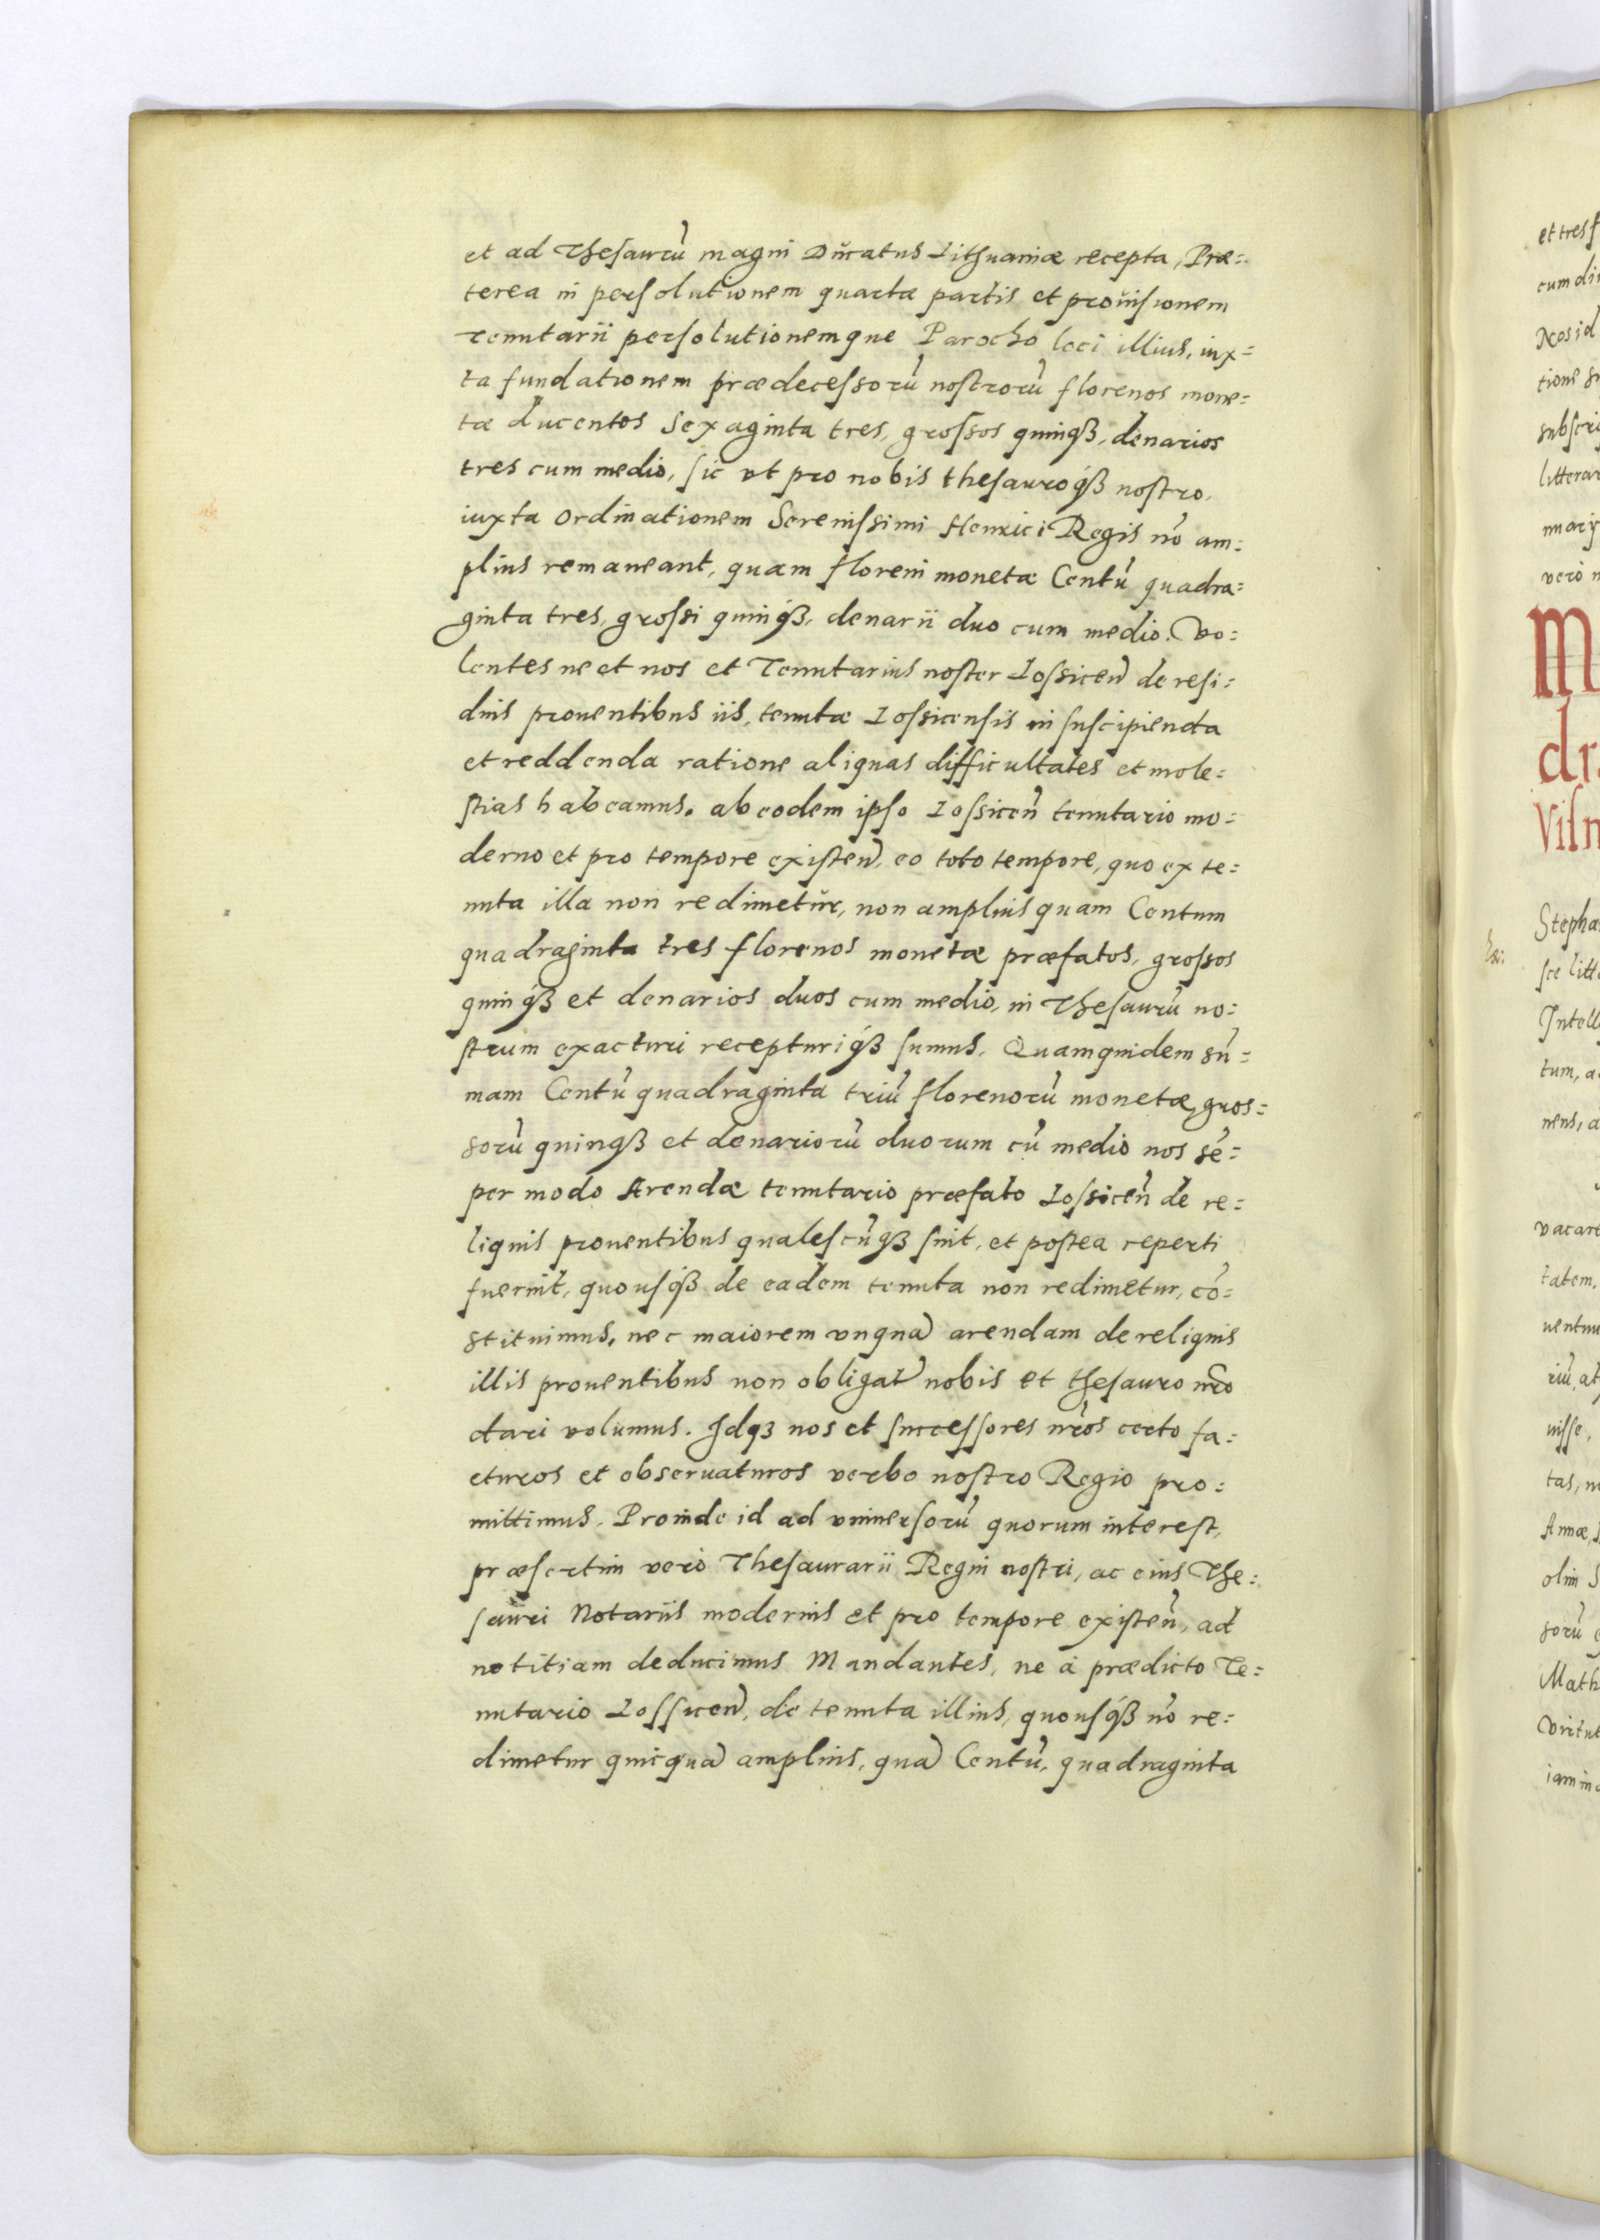 et ad Thesaurũ magni Ducatus Lithuaniæ recepta, Præ=
terea in persolutionem quartæ partis et prouisionem
Tenutarii persolutionemque Parocho loci illius, iux=
ta fundationem prædecessorũ nostrorũ florenos mone=
tæ ducentos sexaginta tres, grossos quinqꝫ, denarios
tres cum medio, sic vt pro nobis thesauroqꝫ nostro,
iuxta ordinationem Serenissimi Henrici Regis nõ am=
plius remaneant, quam floreni monetæ Centũ quadra=
ginta tres, grossi quinqꝫ, denarii duo cum medio. Vo=
lentes ne et nos et Tenutarius noster Lossiceñ de resi=
duis prouentibus iis, tenutæ Lossicensis in suscipienda
et reddenda ratione aliquas difficultates et mole=
stias habeamus, ab eodem ipso Lossiceñ tenutario mo=
derno et pro tempore existeñ, eo toto tempore, quo ex te=
nuta illa non redimetur, non amplius quam Centum
quadraginta tres florenos monetæ præfatos, grossos
quinqꝫ et denarios duos cum medio, in Thesaurũ no=
strum exacturi recepturiqꝫ sumus. Quamquidem sũ=
mam Centũ quadraginta triũ florenorũ monetæ, gros=
sorũ quinqꝫ et denariorũ duorum cũ medio nos sẽ=
per modo Arendæ tenutario præfato Lossiceñ de re=
liquis prouentibus qualescũqꝫ sint, et postea reperti
fuerint, quousqꝫ de eadem tenuta non redimetur, cõ=
stituimus, nec maiorem vnquã arendam de reliquis
illis prouentibus non obligat̃ nobis et thesauro nr̃o
dari volumus. Idqꝫ nos et successores nr̃os certo fa=
cturos et obseruaturos verbo nostro Regio pro=
mittimus. Proinde id ad vniuersorũ quorum interest,
præsertim vero Thesaurarii Regni nostri, ac eius The=
sauri Notariis modernis et pro tempore existeñ, ad
notitiam deducimus Mandantes, ne à prædicto Te=
nutario Lossiceñ, de tenuta illius, quousqꝫ nõ re=
dimetur quicquã amplius, quã Centũ, quadraginta
et tres f
cum di
Nos id
tione s
subscri
litterar
nuarij
vero n
M
dr
Viln
Stepha
sce litt
Intell
tum, a
nens, a
vacare
tatem,
uentu
riũ, at
uisse,
tas, n
Annæ,
olim S
sorũ
Math
Virtut
iam in